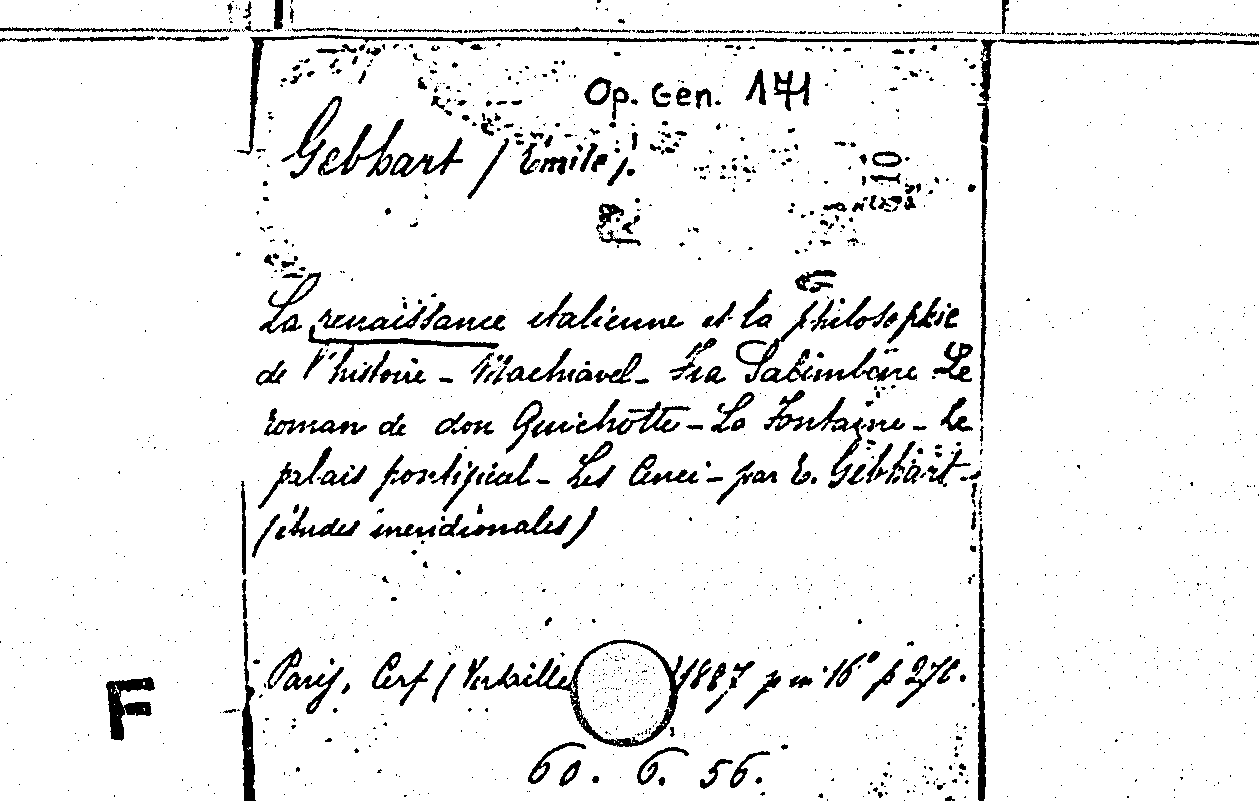 Op. Gen. 171
Gebhart (Emile).
10
La renaissance italienne et la philosophie
de l'histoire – Machiavel – Fra Salimbene – Le
roman de don Quichotte – La Fontaine – Le
palais pontifical – Les Cenci – par E. Gebhart –
(études méridionales)
Paris, Cerf (Versaille 1887 p in 16° p 276.
F
60. 6. 56.